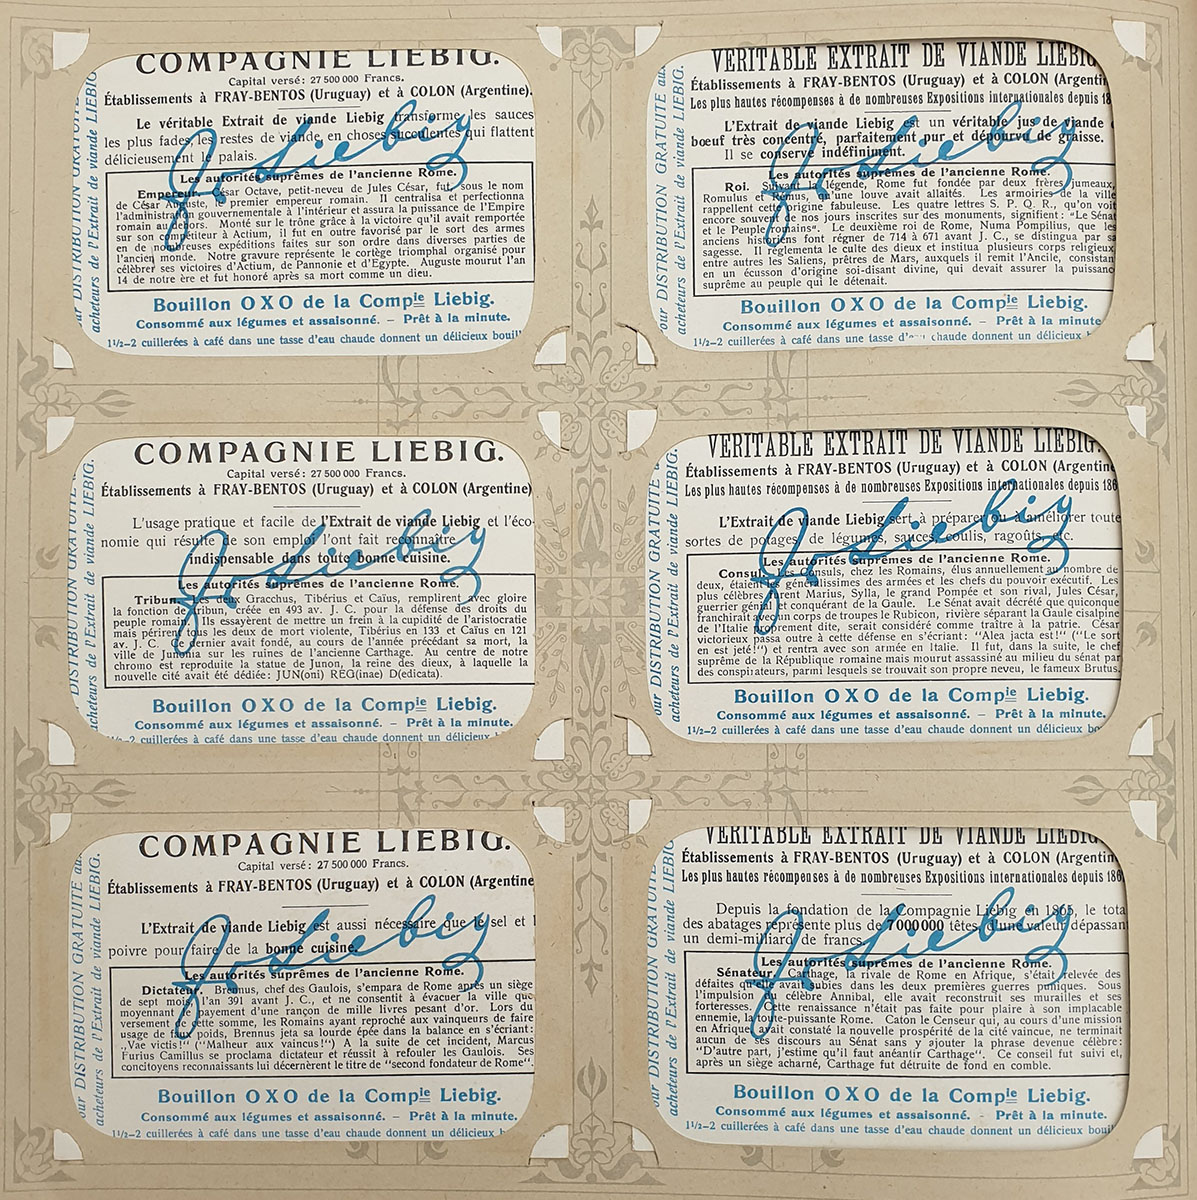 COMPAGNIE LIEBIG.
Capital versé: 27 500 000 Francs.
Établissements à FRAY-BENTOS (Uruguay) et à COLON (Argentine).
Le véritable Extrait de viande Liebig transforme les sauces
les plus fades, les restes de viande, en choses succulentes qui flattent
délicieusement le palais.
Les autorités suprêmes de l'ancienne Rome.
Empereur. César Octave, petit-neveu de Jules César, fut, sous le nom
de César Auguste, le premier empereur romain. Il centralisa et perfectionna
l'administration gouvernementale à l'intérieur et assura la puissance de l'Empire
romain au dehors. Monté sur le trône grâce à la victoire qu'il avait remportée
sur son compétiteur à Actium, il fut en outre favorisé par le sort des armes
en de nombreuses expéditions faites sur son ordre dans diverses parties de
l'ancien monde. Notre gravure représente le cortège triomphal organisé pour
célébrer ses victoires d'Actium, de Pannonie et d'Egypte. Auguste mourut l'an
14 de notre ère et fut honoré après sa mort comme un dieu.
Bouillon OXO de la Compie Liebig.
Consommé aux légumes et assaisonné. – Prêt à la minute.
1½–2 cuillerées à café dans une tasse d'eau chaude donnent un délicieux
DISTRIBUTION GRATUITE
acheteurs de l'Extrait de viande LIEBIG.
J. v. Liebig
VERITABLE EXTRAIT DE VIANDE LIEBIG
Établissements à FRAY-BENTOS (Uruguay) et à COLON
Les plus hautes récompenses à de nombreuses Expositions internationales depuis
L'Extrait de viande Liebig est un véritable jus de viande
bœuf très concentré, parfaitement pur et dépourvu de graisse.
Il se conserve indéfiniment.
Les autorités suprêmes de l'ancienne Rome.
Roi. Suivant la légende, Rome fut fondée par deux frères jumeaux,
Romulus et Rémus, qu'une louve avait allaités. Les armoiries de la ville
rappellent cette origine fabuleuse. Les quatre lettres S. P. Q. R., qu'on voit
encore souvent de nos jours inscrites sur des monuments, signifient: "Le Sénat
et le Peuple romains". Le deuxième roi de Rome, Numa Pompilius, que les
anciens historiens font régner de 714 à 671 avant J. C., se distingua par sa
sagesse. Il réglementa le culte des dieux et institua plusieurs corps religieux,
entre autres les Saliens, prêtres de Mars, auxquels il remit l'Ancile, consistant
en un écusson d'origine soi-disant divine, qui devait assurer la puissance
suprême au peuple qui le détenait.
Bouillon OXO de la Compie Liebig.
Consommé aux légumes et assaisonné. – Prêt à la minute
1½–2 cuillerées à café dans une tasse chaude donnent un délicieux
DISTRIBUTION GRATUITE
acheteurs de l'Extrait de viande LIEBIG.
J. v. Liebig
COMPAGNIE LIEBIG.
Capital versé: 27 500 000 Francs.
Établissements à FRAY-BENTOS (Uruguay) et à COLON (Argentine)
L'usage pratique et facile de l'Extrait de viande Liebig et l'éco-
nomie qui résulte de son emploi l'ont fait reconnaître
indispensable dans toute bonne cuisine.
Les autorités suprêmes de l'ancienne Rome
Tribun. Les deux Gracchus, Tibérius et Caïus, remplirent avec gloire
la fonction de tribun, créée en 493 av. J. C. pour la défense des droits du
peuple romain. Ils essayèrent de mettre un frein à la cupidité de l'aristocratie
mais périrent tous les deux de mort violente, Tibérius en 133 et Caïus en 121
av. J. C. Ce dernier avait fondé, au cours de l'année précédant sa mort, la
ville de Junonia sur les ruines de l'ancienne Carthage. Au centre de notre
chromo est reproduite la statue de Junon, la reine des dieux, à laquelle la
nouvelle cité avait été dédiée: JUN(oni) REG(inae) D(edicata).
Bouillon OXO de la Compie Liebig.
Consommé aux légumes et assaisonné. – Prêt à la minute.
1½–2 cuillerées à café dans une tasse d'eau chaude donnent un délicieux
DISTRIBUTION GRATUITE
acheteurs de l'Extrait de viande LIEBIG.
J. v. Liebig
VERITABLE EXTRAIT DE VIANDE LIEBIG.
Établissements à FRAY-BENTOS (Uruguay) et à COLON
Les plus hautes récompenses à de nombreuses Expositions internationales depuis 186
L'Extrait de viande Liebig sert à préparer ou à améliorer toute
sortes de potages, de légumes, sauces, coulis, ragoûts, etc.
Les autorités suprêmes de l'ancienne Rome.
Consul. Les consuls, chez les Romains, élus annuellement au nombre de
deux, étaient les généralissimes des armées et les chefs du pouvoir exécutif. Les
plus célèbres furent Marius, Sylla, le grand Pompée et son rival, Jules César,
guerrier génial et conquérant de la Gaule. Le Sénat avait décrété que quiconque
franchirait avec un corps de troupes le Rubicon, rivière séparant la Gaule cisalpine
de l'Italie proprement dite, serait considéré comme traître à la patrie. César
victorieux passa outre à cette défense en s'écriant: "Alea jacta est!" ("Le sort
en est jeté!") et rentra avec son armée en Italie. Il fut, dans la suite, le chef
suprême de la République romaine mais mourut assassiné au milieu du sénat par
des conspirateurs, parmi lesquels se trouvait son propre neveu, le fameux Brutus.
Bouillon OXO de la Compie Liebig.
Consommé aux légumes et assaisonné. – Prêt à la minute.
1½–2 cuillerées à café dans une tasse d'eau chaude donnent un délicieux
our DISTRIBUTION GRATUITE
acheteurs de l'Extrait de viande LIEBIG.
J. v. Liebig
COMPAGNIE LIEBIG.
Capital versé: 27 500 000 Francs.
Établissements à FRAY-BENTOS (Uruguay) et à COLON (Argentine
L'Extrait de viande Liebig est aussi nécessaire que le sel et l
poivre pour faire de la bonne cuisine.
Les autorités suprêmes de l'ancienne Rome.
Dictateur. Brennus, chef des Gaulois, s'empara de Rome après un siège
de sept mois, l'an 391 avant J. C., et ne consentit à évacuer la ville que
moyennant le payement d'une rançon de mille livres pesant d'or. Lors du
versement de cette somme, les Romains ayant reproché aux vainqueurs de faire
usage de faux poids, Brennus jeta sa lourde épée dans la balance en s'écriant:
„Vae victis!" ("Malheur aux vaincus!") A la suite de cet incident, Marcus
Furius Camillus se proclama dictateur et réussit à refouler les Gaulois. Ses
concitoyens reconnaissants lui décernèrent le titre de "second fondateur de Rome".
Bouillon OXO de la Compie Liebig.
Consommé aux légumes et assaisonné. – Prêt à la minute.
1½–2 cuillerées à café dans une tasse d'eau chaude donnent un délicieux
our DISTRIBUTION GRATUITE au
acheteurs de l'Extrait de viande LIEBIG.
J. v. Liebig
VERITABLE EXTRAIT DE VIANDE LIEBIG
Établissements à FRAY-BENTOS (Uruguay) et à COLON
Les plus hautes récompenses à de nombreuses Expositions internationales depuis 186
Depuis la fondation de la Compagnie Liebig en 1865, le tota
des abatages représente plus de 7000000 têtes, d'une valeur dépassan
un demi-milliard de francs.
Les autorités suprêmes de l'ancienne Rome
Sénateur. Carthage, la rivale de Rome en Afrique, s'était relevée des
défaites qu'elle avait subies dans les deux premières guerres puniques. Sous
l'impulsion du célèbre Annibal, elle avait reconstruit ses murailles et ses
forteresses. Cette renaissance n'était pas faite pour plaire à son implacable
ennemie, la toute-puissante Rome. Caton le Censeur qui, au cours d'une mission
en Afrique, avait constaté la nouvelle prospérité de la cité vaincue, ne terminait
aucun de ses discours au Sénat sans y ajouter la phrase devenue célèbre:
"D'autre part, j'estime qu'il faut anéantir Carthage". Ce conseil fut suivi et,
après un siège acharné, Carthage fut détruite de fond en comble.
Bouillon OXO de la Compie Liebig.
Consommé aux légumes et assaisonné. - Prêt à la minute.
1½–2 cuillerées à café dans une tasse d'eau chaude donnent un délicieux
our DISTRIBUTION GRATUITE
acheteurs de l'Extrait de viande LIEBIG.
J. v. Liebig